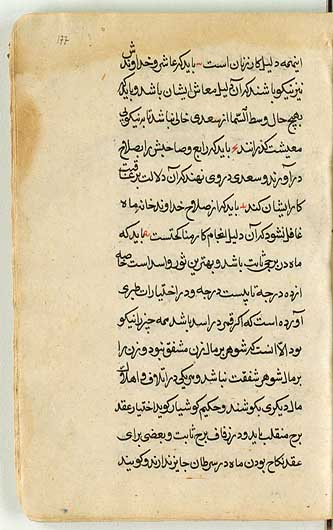 ۱۷۷
اینهمه دلیل کار زنان است باید که عاشر و خداوندش
نیز نیکو باشند که آن دلیل معاش ایشان باشد و باید که
بهیچ حال وسط السما از سعدی خالی نباشد تا بر نیکویی
معیشت گذرانند باید که رابع و صاحبش را بصلاح
در آورند و سعدی در وی نهند که آن دلالت بر عاقبت
کار ایشان کند باید که از صلاح خداوند خانه ماه
غافل نشود که آن دلیل انجام کار مناکحتست باید که
ماه در برجی ثابت باشد و بهترین ثور و اسد است خاصه
از ده درجه تا بیست درجه و در اختیارات طبری
آورده است که اگر قمر در اسد باشد همه چیز را نیکو
بود الا آنست که شوهر بر مال زن مشفق نبود و زن را
بر مال شوهر شفقت نباشد و هر یکی در اتلاف و اهلاک
مال دیگری کوشند و حکیم کوشیار گوید اختیار عقد
برج منقلب باید و در زفاف برج ثابت و بعضی برای
عقد نکاح بودن ماه در سرطان جایز ندارند و گویند